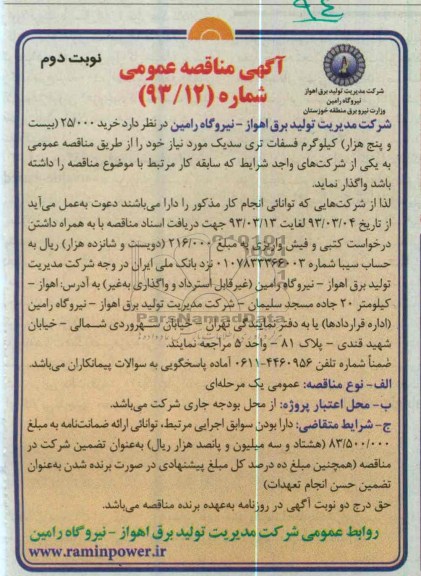 نوبت دوم
آگهی مناقصه عمومی
شماره (۹۳/۱۲)
شرکت مدیریت تولید برق اهواز
نیروگاه رامین
وزارت نیرو برق منطقه خوزستان
شرکت مدیریت تولید برق اهواز - نیروگاه رامین در نظر دارد خرید ۲۵/۰۰۰ (بیست
و پنج هزار) کیلوگرم فسفات تری سدیک مورد نیاز خود را از طریق مناقصه عمومی
به یکی از شرکت‌های واجد شرایط که سابقه کار مرتبط با موضوع مناقصه را داشته
باشد واگذار نماید.
لذا از شرکت‌هایی که توانائی انجام کار مذکور را دارا می‌باشند دعوت به‌عمل می‌آید
از تاریخ ۹۳/۰۳/۰۴ لغایت ۹۳/۰۳/۱۳ جهت دریافت اسناد مناقصه با به همراه داشتن
درخواست کتبی و فیش واریزی به مبلغ ۲۱۶/۰۰۰ (دویست و شانزده هزار) ریال به
حساب سیبا شماره ۰۱۰۷۸۳۳۳۶۶۰۰۳ نزد بانک ملی ایران در وجه شرکت مدیریت
تولید برق اهواز - نیروگاه رامین (غیرقابل استرداد و واگذاری به‌غیر) به آدرس: اهواز -
کیلومتر ۲۰ جاده مسجد سلیمان - شرکت مدیریت تولید برق اهواز - نیروگاه رامین
(اداره قراردادها) یا به دفتر نمایندگی تهران - خیابان سهروردی شمالی - خیابان
شهید قندی - پلاک ۸۱ - واحد ۵ مراجعه نمایند.
ضمناً شماره تلفن ۴۴۶۰۹۵۶-۰۶۱۱ آماده پاسخگویی به سوالات پیمانکاران می‌باشد.
الف- نوع مناقصه: عمومی یک مرحله‌ای
ب- محل اعتبار پروژه: از محل بودجه جاری شرکت می‌باشد.
ج- شرایط متقاضی: دارا بودن سوابق اجرایی مرتبط، توانائی ارائه ضمانت‌نامه به مبلغ
۸۳/۵۰۰/۰۰۰ (هشتاد و سه میلیون و پانصد هزار ریال) به‌عنوان تضمین شرکت در
مناقصه (همچنین مبلغ ده درصد کل مبلغ پیشنهادی در صورت برنده شدن به‌عنوان
تضمین حسن انجام تعهدات)
حق درج دو نوبت آگهی در روزنامه به‌عهده برنده مناقصه می‌باشد.
روابط عمومی شرکت مدیریت تولید برق اهواز - نیروگاه رامین
www.raminpower.ir